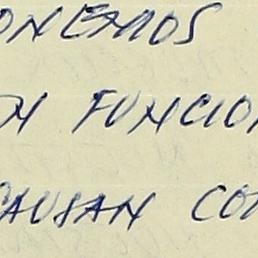 ONEMOS
ON FUNCIO
CAUSAN CO